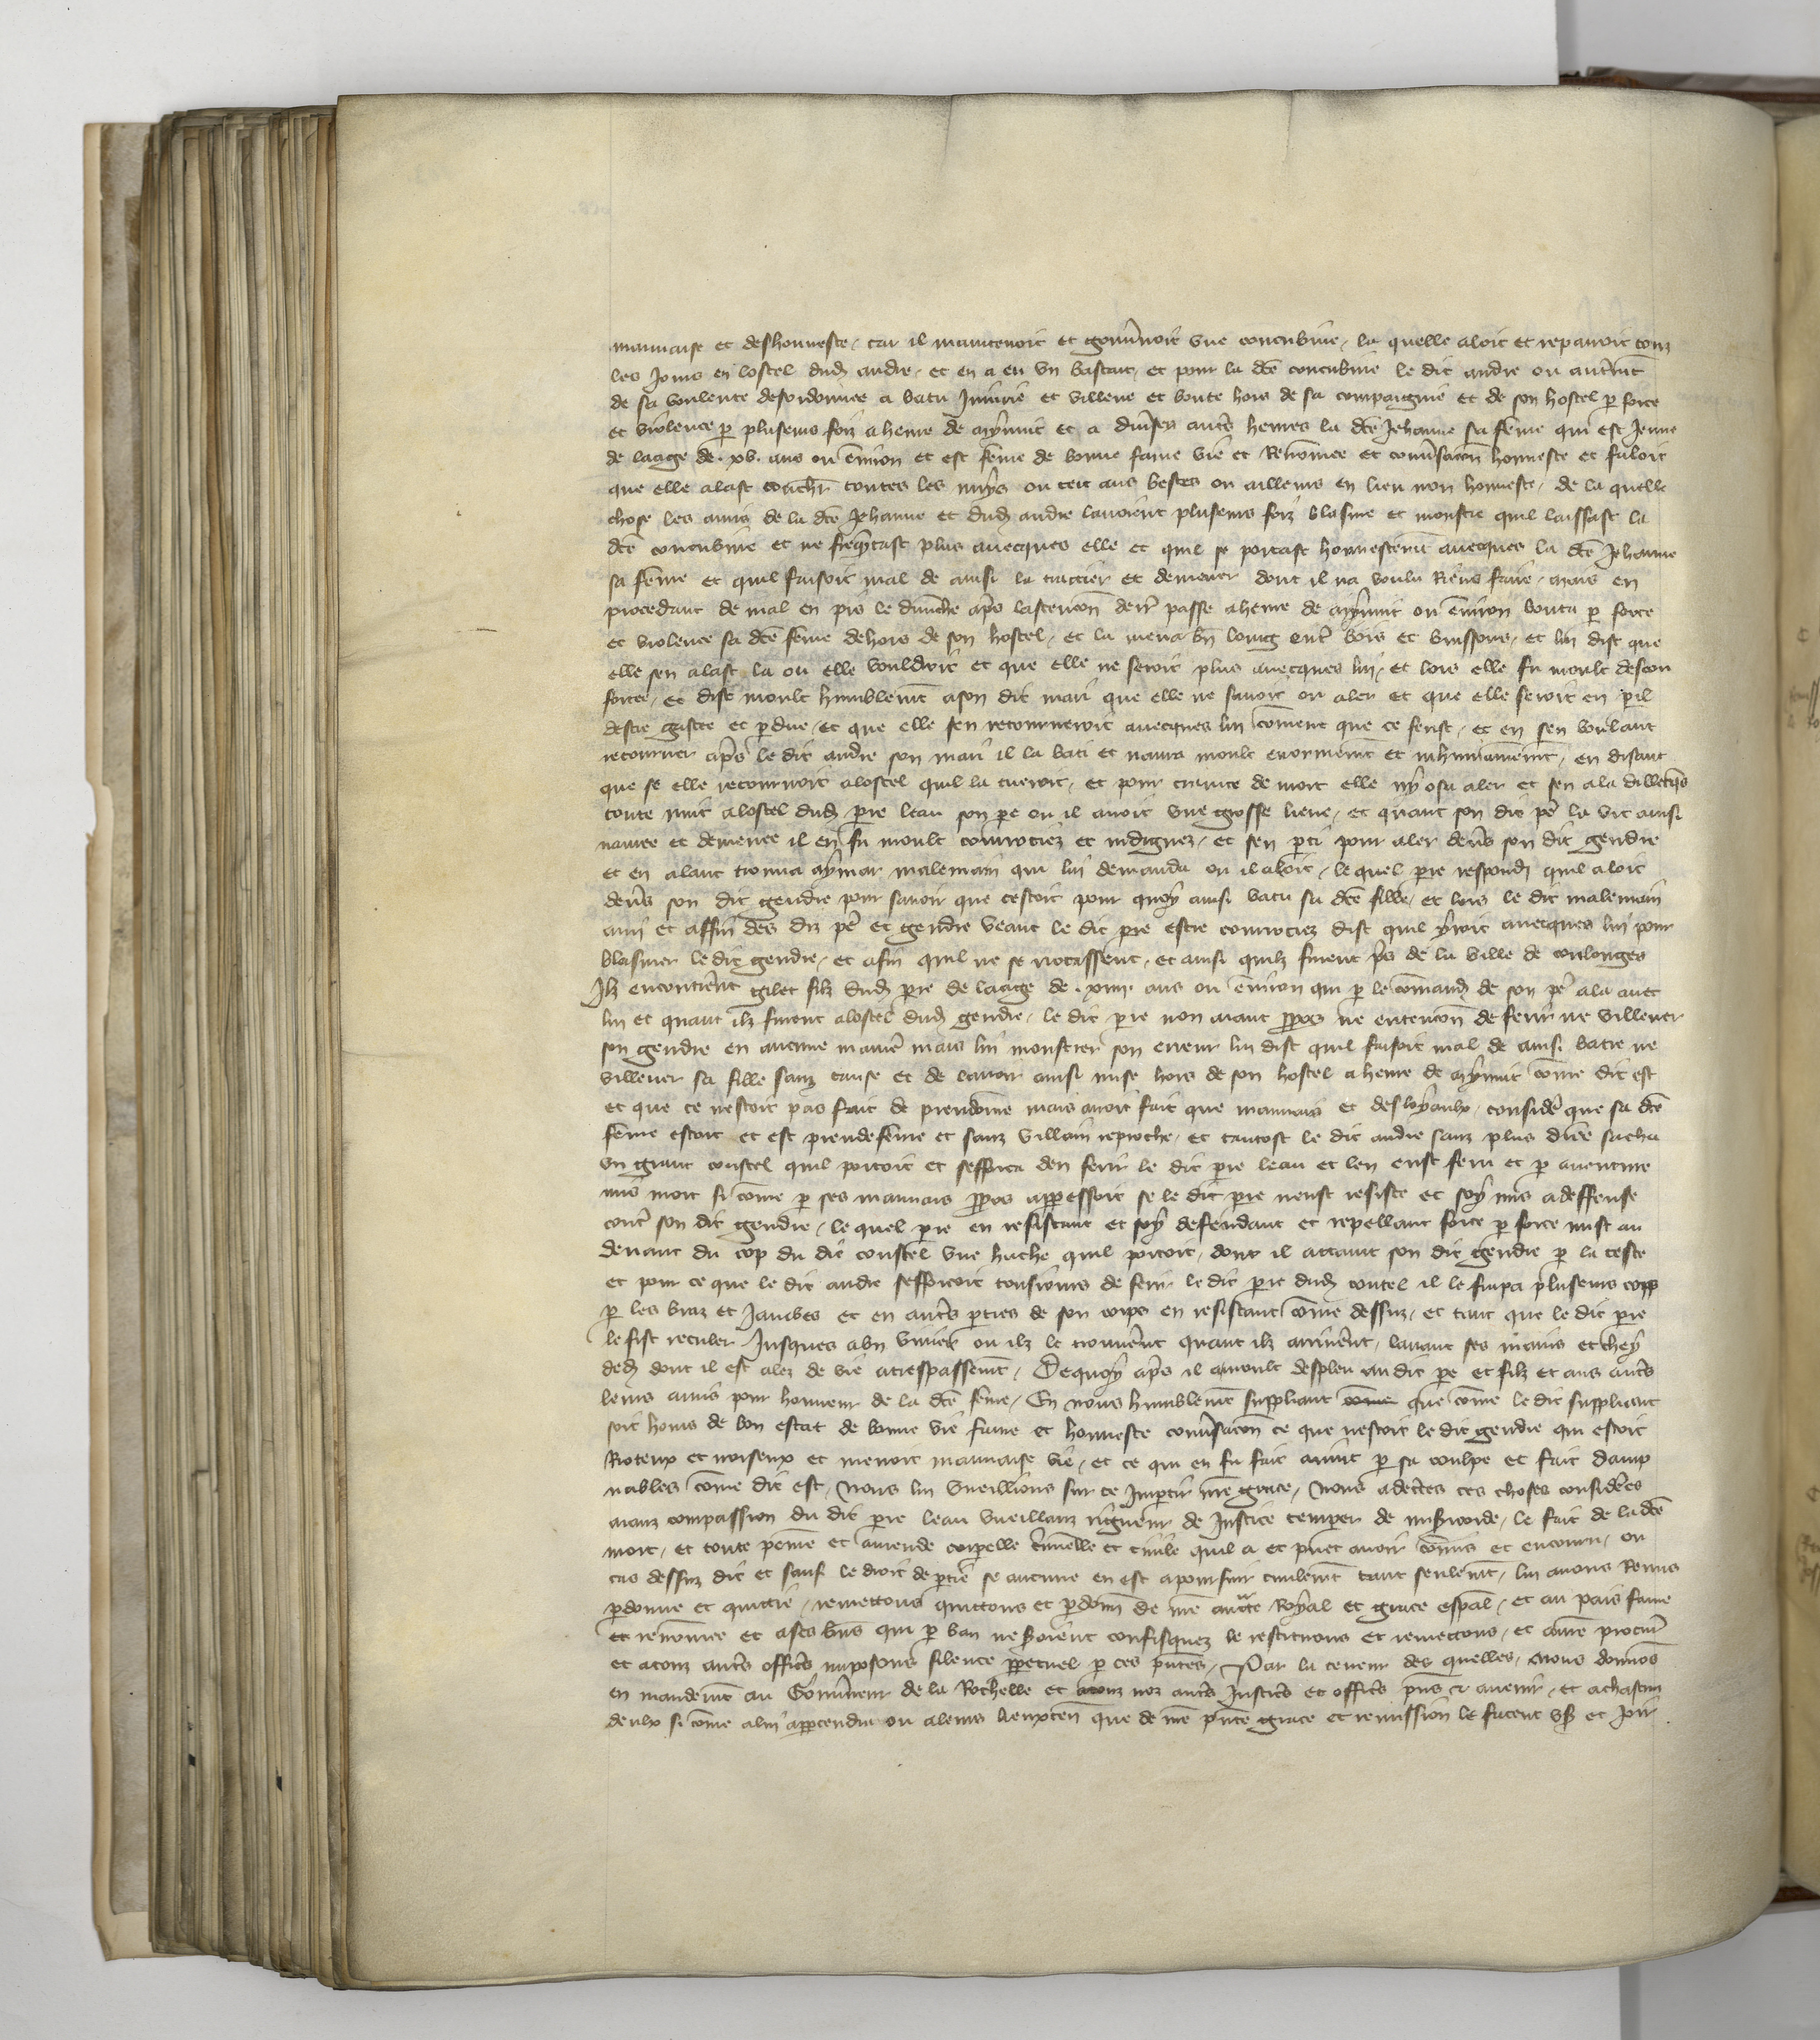 mauvaise et deshonneste, car il maintenoit et gouvnoit une concubine, la quelle aloit et repairoit touz
les jours en lostel dud andre, et en a eu un bastart, et pour la dce concubine le dit andre ou autremt
de sa voulente desordonnee a batu Injurie et villene et boute hors de sa compaignie et de son hostel p force
et violence p pluseurs foiz a heure de mynuit et a divses autres heures la dce Jehanne sa feme qui est Jeune
de laage de .xv. ans ou environ et est feme de bonne fame vie et Renommee et convsacon honneste et faloit
que elle alast couchr toutes les nuys ou teit aus bestes ou ailleurs en lieu non honneste, de la quelle
chose les amis de la dce Jehanne et dud andre lavoient pluseurs foiz blasme et monstre quil laissast la
dce concubine et ne freqntast plus avecques elle et quil se portast honnestemt avecques la dce Jehanne
sa feme et quil faisoit mal de ainsi la traictier et demener dont il na voulu Riens faire, mais en
procedant de mal en pis le dimenche apres lascencon derr passe a heure de mynuit ou environ bouta p force
et violence sa dce feme dehors de son hostel, et la mena bn loing entr bois et buissons, et lui dist que
elle sen alast la ou elle vouldroit et que elle ne seroit plus avecques lui, et lors elle fu moult descon
fortee, et dist moult humblemt a son dit mari que elle ne savoit ou aler et que elle seroit en peril
destre gastee et pdue, et que elle sen retourneroit avecques lui coment que ce feust, et en sen voulant
retourner apres le dit andre son mari il la bati et navra moult enormemt et inhumainemt, en disant
que se elle retournoit a lostel quil la tueroit, et pour crainte de mort elle ny osa aler et sen ala dillecqs
toute nuit a lostel dud pre leau son pe ou il avoit une grosse lieue, et quant son dit pe la vit ainsi
navree et demenee il en fu moult courrociez et indignez, et sen pti pour aler devs son dit gendre
et en alant trouva aymar malemain qui lui demanda ou il aloit, le quel pre respond quil aloit
devs son dit gendre pour savoir que cestoit pour quoy ainsi batu sa dce fille, et lors le dit malemain
ami et affin des diz pe et gendre veant le dit pre estre courrociez dist quil yroit avecques lui pour
blasmer le dit gendre, et afin quil ne se riotassent, et ainsi quilz furent pres de la ville de coulonges
Ilz encontrent gilet filz dud pre de laage de .xiiii. ans ou environ qui p le comand de son pe ala avec
lui et quant ilz furent a lostel dud gendre, le dit pre non aiant ppos ne entencon de ferir ne villener
son gendre en aucune maniere mais lui monstrer son erreur lui dist quil faisoit mal de ainsi batre ne
villener sa fille sanz cause et de lavoir ainsi mise hors de son hostel a heure de mynuit come dit est
et que ce nestoit pas fait de preudome mais avoit fait que mauvais et desloyaulx, consider que sa dce
feme estoit et est preudefeme et sanz villain reproche, et tantost le dit andre sanz plus dire sacha
un grant coustel quil portoit et sefforca den ferir le dit pre leau et len eust feru et p aventure
mis mort si come p ses mauvais ppos apparessoit se le dit pre neust resiste et soy mis a deffense
contr son dit gendre, le quel pre en resistant et soy defendant et repellant force p force mist au
devant du cop du dit coustel une hache quil portoit, dont il attaint son dit gendre p la teste
et pour ce que le dit andre sefforcoit tousjours de ferir le dit pre dud coutel il le frapa pluseurs cops
p les braz et Jambes et en autres pties de son corps en resistant come dessuz, et tant que le dit pre
le fist reculer Jusques a un vivier ou ilz le trouvent quant ilz arrivent, lavant ses mains et chey
ded dont il est alez de vie a trespassemt, De quoy apres il a moult despleu au dit pe et filz et aus autres
leurs amis pour honneur de la dce feme, En nous humblemt suppliant come que come le dit suppliant
soit homs de bon estat de bonne vie fame et honneste convsacon ce que nestoit le dit gendre qui estoit
Rioteux et noiseux et menoit mauvaise vie, et ce qui en fu fait avint p sa coulpe et fait damp
nables come dit est, Nous lui vueillions sur ce Impartir nre grace, Nous adectes ces choses considerees
aianz compassion du dit pre leau vueillanz rigueur de Justice temperer de misericorde, le fait de la dce
mort, et toute peine et amende corpelle criminelle et civile quil a et puet avoir comis et encouru, ou
cas dessuz dit et sauf le droit de ptie se aucune en est a poursuir civilemt tant seulemt, lui avons Remis
pdonne et quittie, remettons quittons et pdonn de nre auctte Royal et grace espal, et au pais fame
et renomee et a ses bns qui p ban ne soient confisquez le restituons et remettons, et a nre procur
et a touz autres officrs imposons silence ppetuel p ces pntes, Par la teneur des quelles, Nous donnos
en mandemt au Gouvneur de la Rochelle et a touz noz autres Justices et officrs pns et avenir, et a chascun
deulx si come a lui appartendra ou a leurs lieuxten que de nre pnte grace et remission le facent us et joir